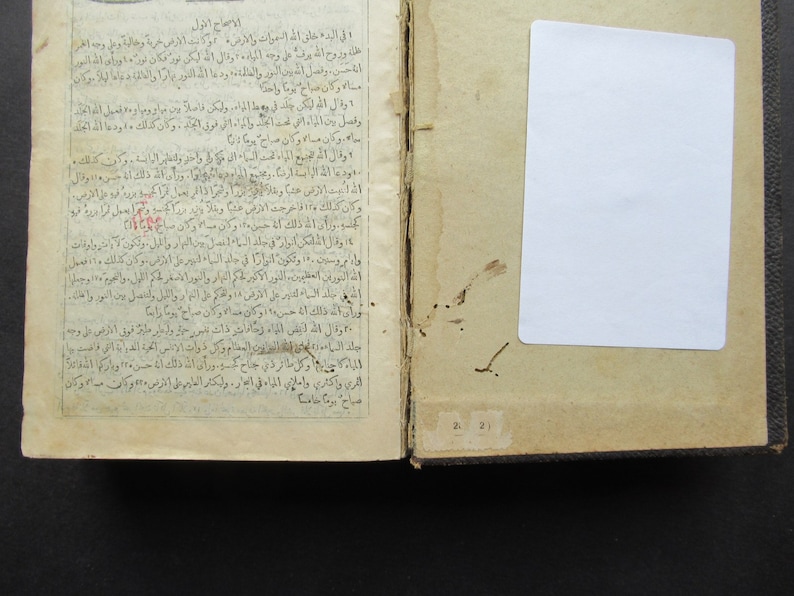 الاصحاح الاول
١ في البدء خلق الله السموات والارض ٢ وكانت الارض خربة وخالية وعلى وجه الغمر
ظلمة وروح الله يرف على وجه المياه ٣ وقال الله ليكن نور فكان نور ٤ ورأى الله النور
انه حسن. وفصل الله بين النور والظلمة ٥ ودعا الله النور نهارا والظلمة دعاها ليلا. وكان
مساء وكان صباح يوما واحدا
٦ وقال الله ليكن جلد في وسط المياه. وليكن فاصلا بين مياه ومياه ٧ فعمل الله الجلد
وفصل بين المياه التي تحت الجلد والمياه التي فوق الجلد. وكان كذلك ٨ ودعا الله الجلد
سماء. وكان مساء وكان صباح يوما ثانيا
٩ وقال الله لتجتمع المياه تحت السماء الى مكان واحد ولتظهر اليابسة. وكان كذلك
١٠ ودعا الله اليابسة ارضا. ومجتمع المياه دعاه بحارا. ورأى الله ذلك انه حسن ١١ وقال
الله لتنبت الارض عشبا وبقلا يبزر بزرا وشجرا ذا ثمر يعمل ثمرا كجنسه بزره فيه على الارض.
وكان كذلك ١٢ فاخرجت الارض عشبا وبقلا يبزر بزرا كجنسه وشجرا يعمل ثمرا بزره فيه
كجنسه. ورأى الله ذلك انه حسن ١٣ وكان مساء وكان صباح يوما ثالثا
١٤ وقال الله لتكن انوار في جلد السماء لتفصل بين النهار والليل. وتكون لآيات واوقات
وايام وسنين ١٥ وتكون انوارا في جلد السماء لتنير على الارض. وكان كذلك ١٦ فعمل
الله النورين العظيمين. النور الاكبر لحكم النهار والنور الاصغر لحكم الليل. والنجوم ١٧ وجعلها
الله في جلد السماء لتنير على الارض ١٨ ولتحكم على النهار والليل ولتفصل بين النور والظلمة.
ورأى الله ذلك انه حسن ١٩ وكان مساء وكان صباح يوما رابعا
٢٠ وقال الله لتفض المياه زحافات ذات نفس حية وليطر طير فوق الارض على وجه
جلد السماء ٢١ فخلق الله التنانين العظام وكل ذوات الانفس الحية الدبابة التي فاضت بها
المياه كاجناسها وكل طائر ذي جناح كجنسه. ورأى الله ذلك انه حسن ٢٢ وباركها الله قائلا
اثمري واكثري واملإي المياه في البحار. وليكثر الطير على الارض ٢٣ وكان مساء وكان
صباح يوما خامسا
2 2